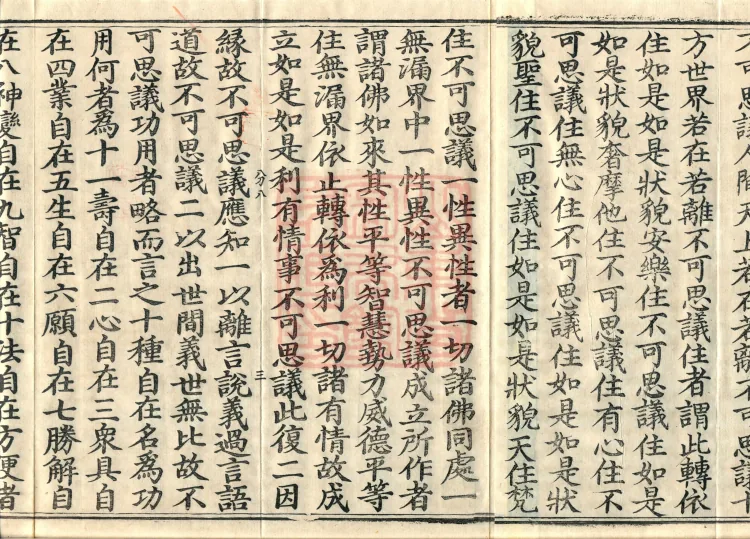 可思議人間天上若在若離不可思議十
方世界若在若離不可思議住者謂此轉依
住如是狀貌安樂住不可思議住如是
如是狀貌奢摩他住不可思議住有心住不
可思議住無心住不可思議住如是如是狀
貌聖住不可思議住如是如是狀貌天住梵
住不可思議一性異性者一切諸佛同處一
無漏界中一性異性不可思議成立所作者
謂諸佛如來其性平等智慧勢力威德平等
住無漏界依止轉依爲利一切諸有情故成
立如是如是利有情事不可思議此復二因
分八
三
緣故不可思議應知一以離言說義過言語
道故不可思議二以出世間義世無比故不
可思議功用者略而言之十種自在名爲功
用何者爲十一壽自在二心自在三衆具自
在四業自在五生自在六願自在七勝解自
在八神變自在九智自在十法自在方便者